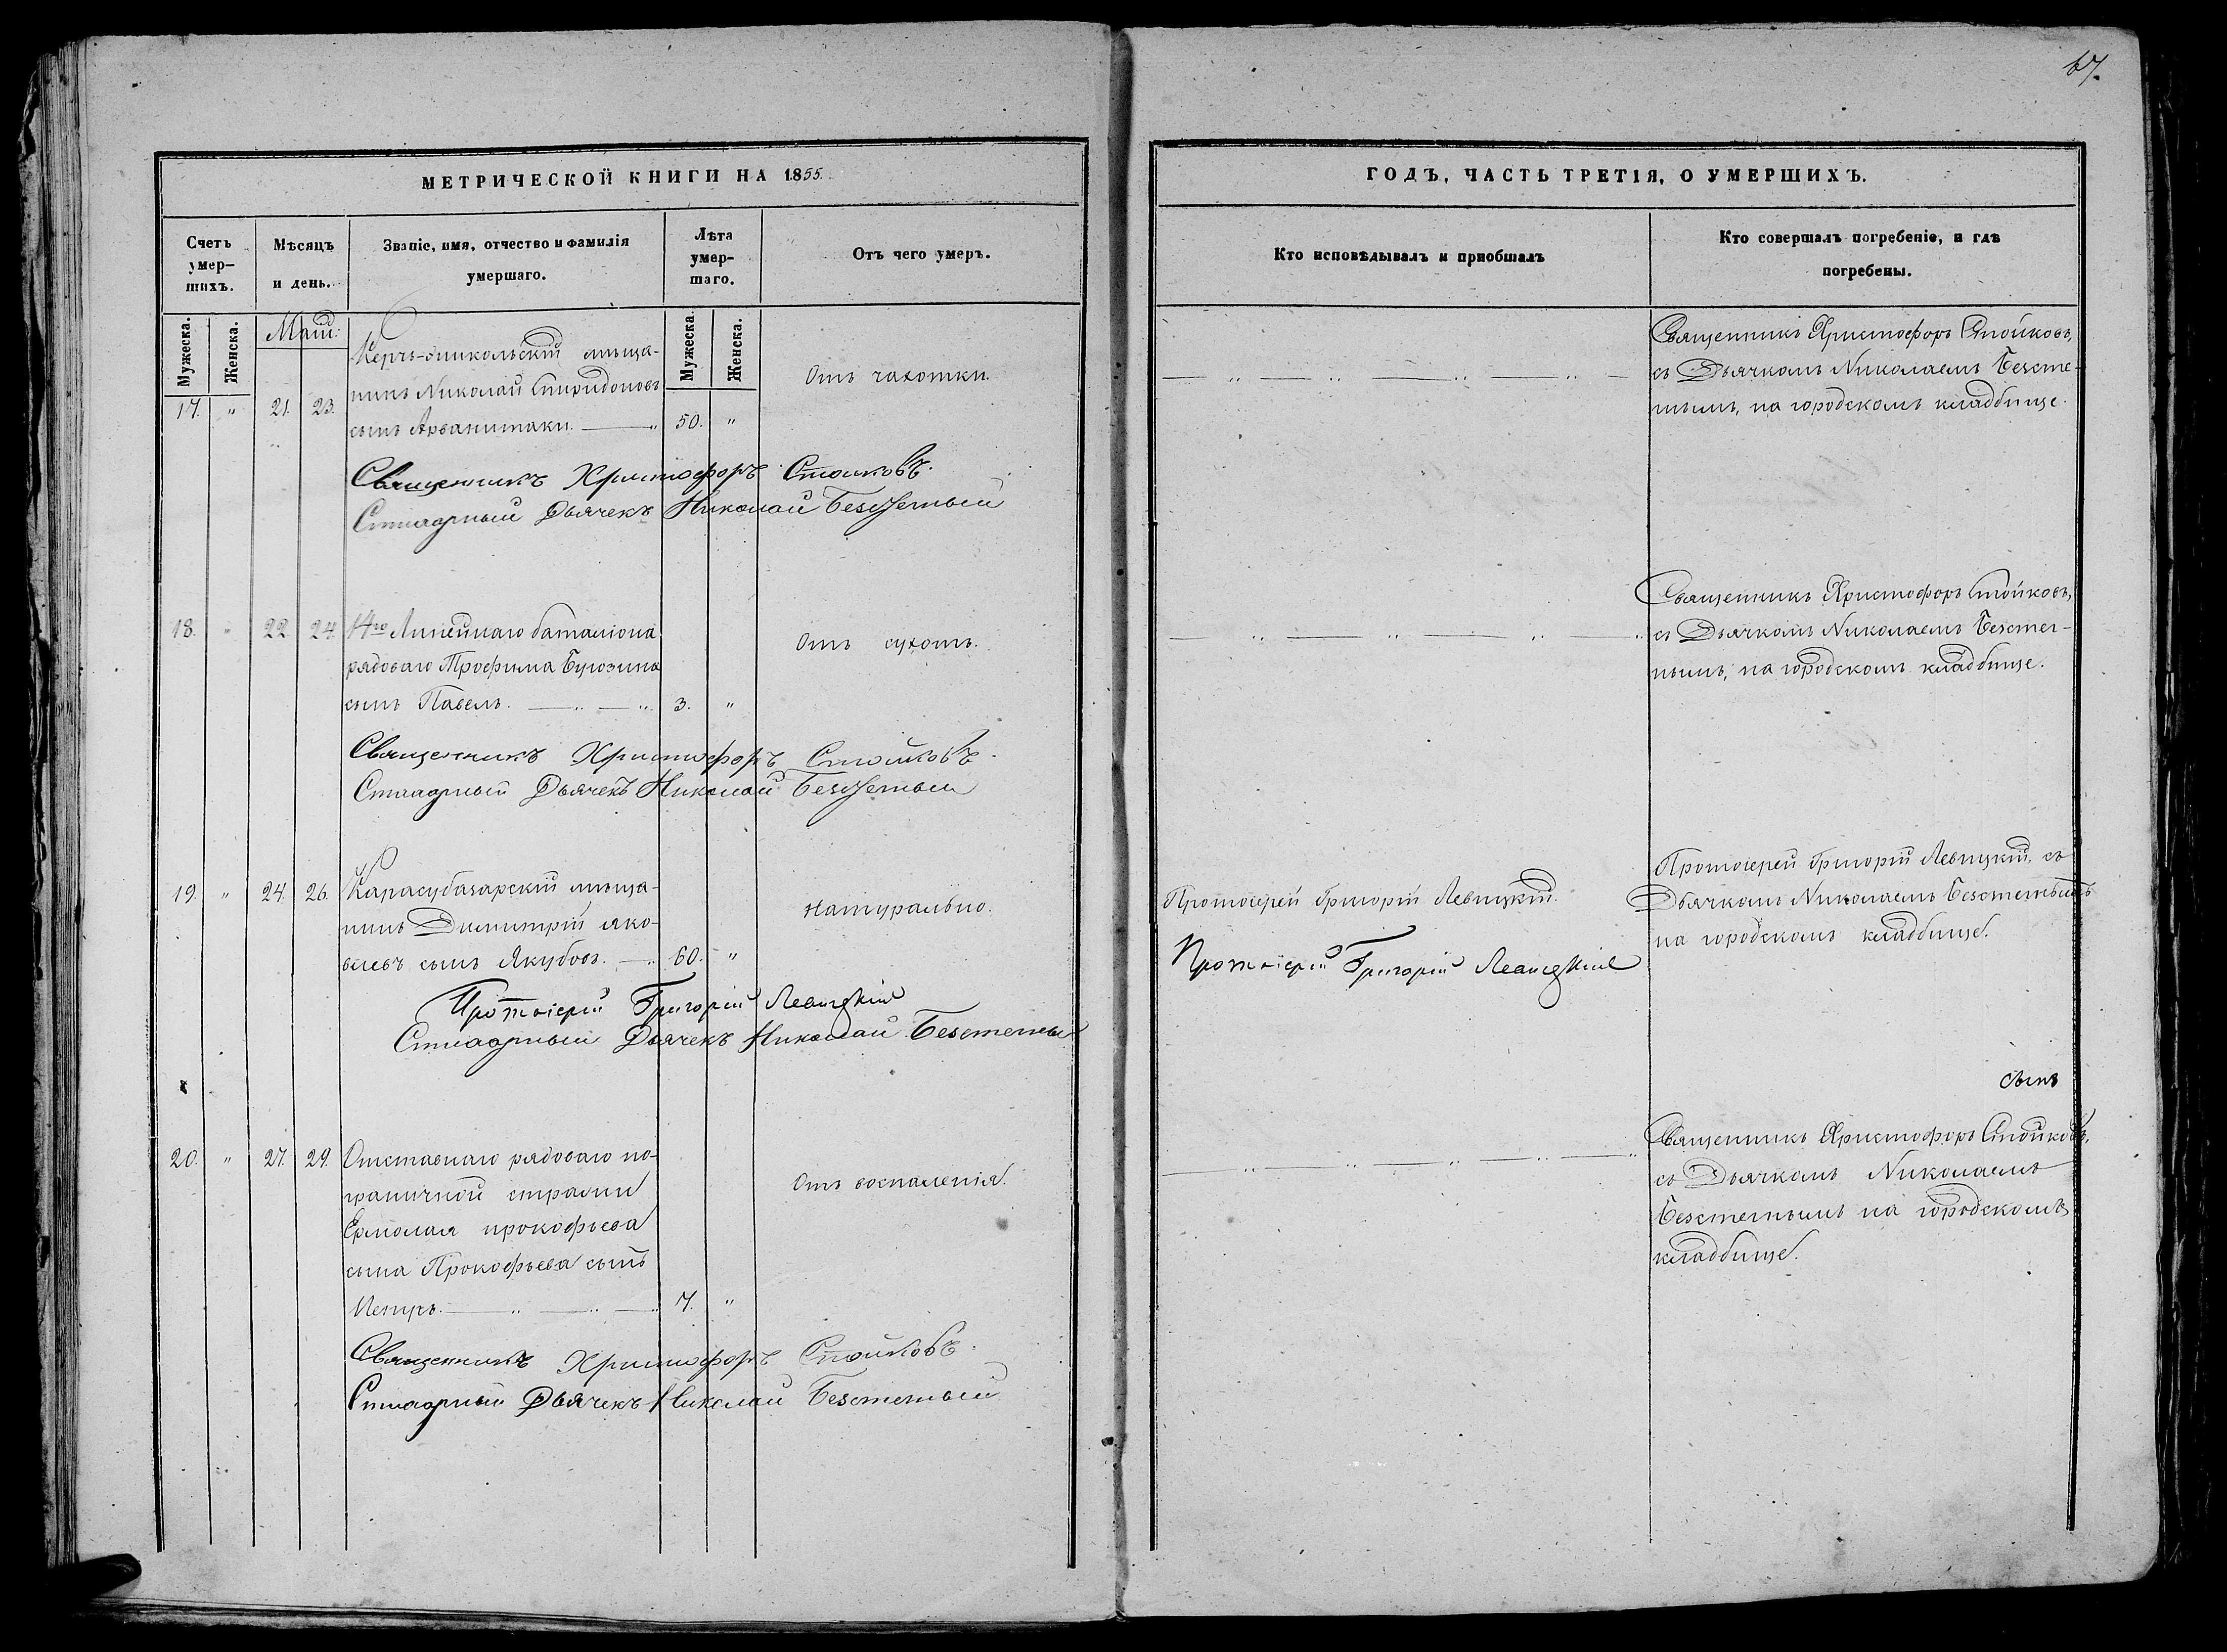 67.
МЕТРИЧЕСКОЙ КНИГИ НА 1855.
ГОДЪ, ЧАСТЬ ТРЕТІЯ, О УМЕРШИХЪ.
Счетъ умер-шихъ.
Мѣсяцъ и день.
Званіе, имя, отчество и фамилія умершаго.
Лѣта умер-шаго.
Отъ чего умеръ.
Кто исповѣдывалъ и пріобщалъ
Кто совершалъ погребеніе, и гдѣ погребены.
Мужеска.
Женска.
Маій.
Мужеска.
Женска.
17. " 21. 23.
Керчь-эникольскій мѣща-
нинъ Николай Спиридоновъ
сынъ Арванитаки. 50. "
Отъ чахотки.
Священникъ Христофоръ Стойковъ,
съ Дьячкомъ Николаемъ Безсте-
тнымъ, на городскомъ кладбище.
Священникъ Христофоръ Стойковъ.
Дьячекъ Николай
18. " 22 24.
Линейнаго баталіона
рядоваго Трофима
сынъ Павелъ. 3. "
Отъ сухотъ.
Священникъ Христофоръ Стойковъ,
съ Дьячкомъ Николаемъ
на городскомъ кладбище.
Священникъ Христофоръ Стойковъ.
Дьячекъ Николай
19. " 24. 26.
Карасубазарскій мѣща-
нинъ Димитрій яко-
влевъ сынъ Якубовъ. 60. "
Натурально.
Протоіерей Григорій Левицкій.
Протоіерей Григорій Левицкій
Протоіерей Григорій Левицкій, съ
Дьячкомъ Николаемъ
на городскомъ кладбище.
Протоіерей Григорій Левицкій
Дьячекъ Николай
сынъ
20. " 27. 29.
Отставнаго рядоваго по-
граничной стражи
Ермолая прокофьева
сына Прокофьева сынъ
Петръ. 7. "
Отъ воспаленія.
Священникъ Христофоръ Стойковъ,
съ Дьячкомъ Николаемъ
на городскомъ
кладбище.
Священникъ Христофоръ Стойковъ.
Дьячекъ Николай